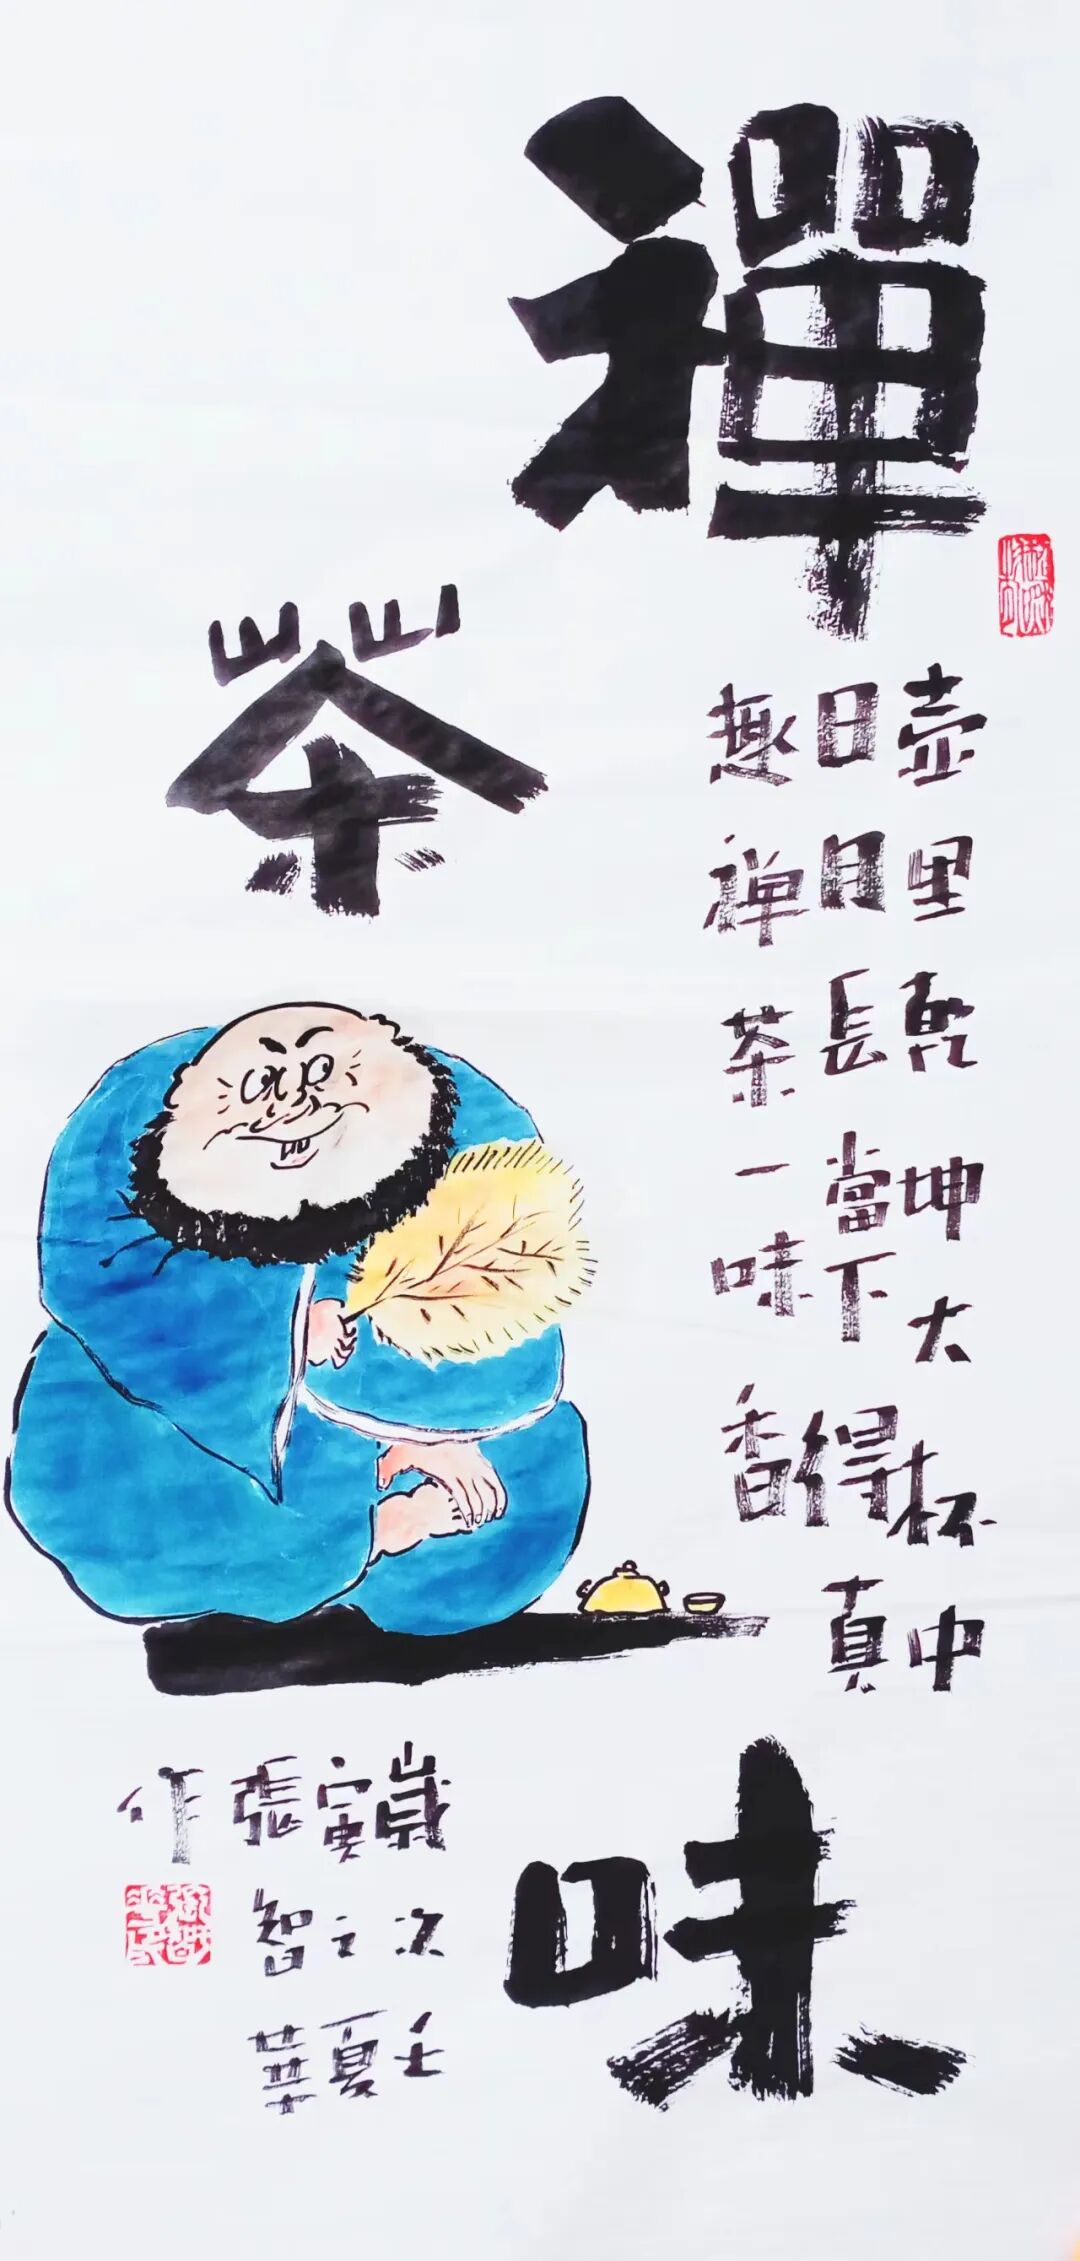 禪
茶
味
壶里乾坤大杯中
日月長當下得真
趣禅茶一味香
歲次壬
寅之夏
張智華
作